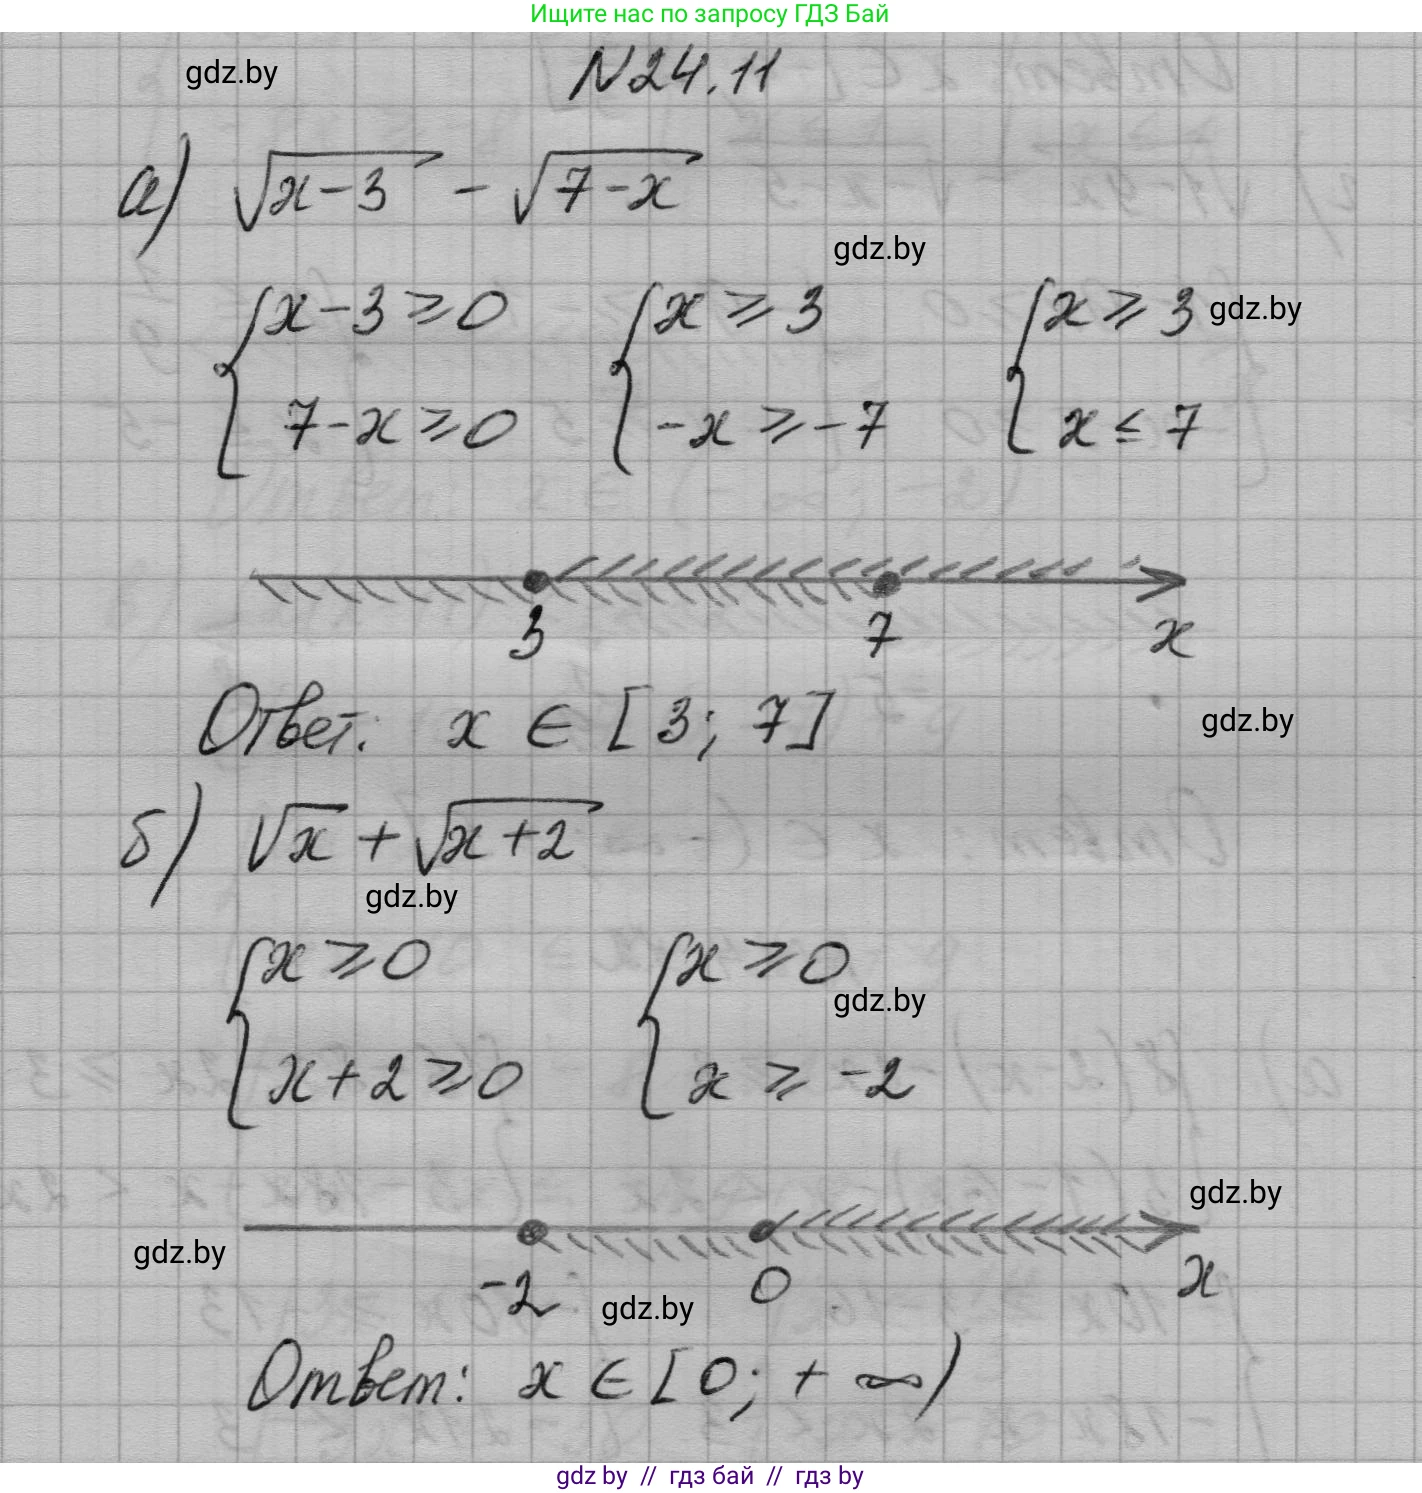 Ищите нас по запросу ГДЗ Бай
gdz.by
N24.11
а) √(x-3) - √(7-x)
gdz.by
{x-3⩾0 {x⩾3 {x⩾3 gdz.by
7-x⩾0 -x⩾-7 x≤7
3 7 x
Ответ: x ∈ [3; 7] gdz.by
б) √x + √(x+2)
gdz.by
{x⩾0 {x⩾0
gdz.by
x+2⩾0 x⩾-2
gdz.by
gdz.by
-2 0 x
gdz.by
Ответ: x ∈ [0; +∞)
gdz.by // гдз бай // гдз by